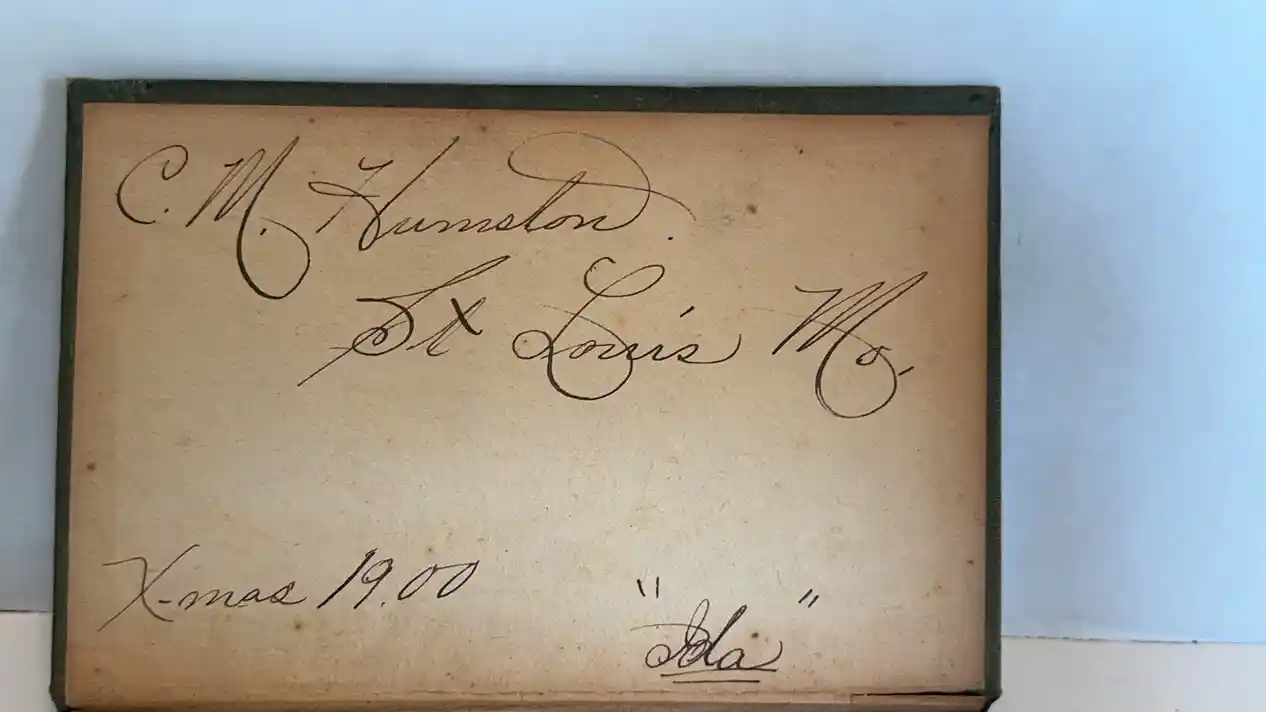 C. M. Humston.
St Louis Mo.
X-mas 1900
"Ida"